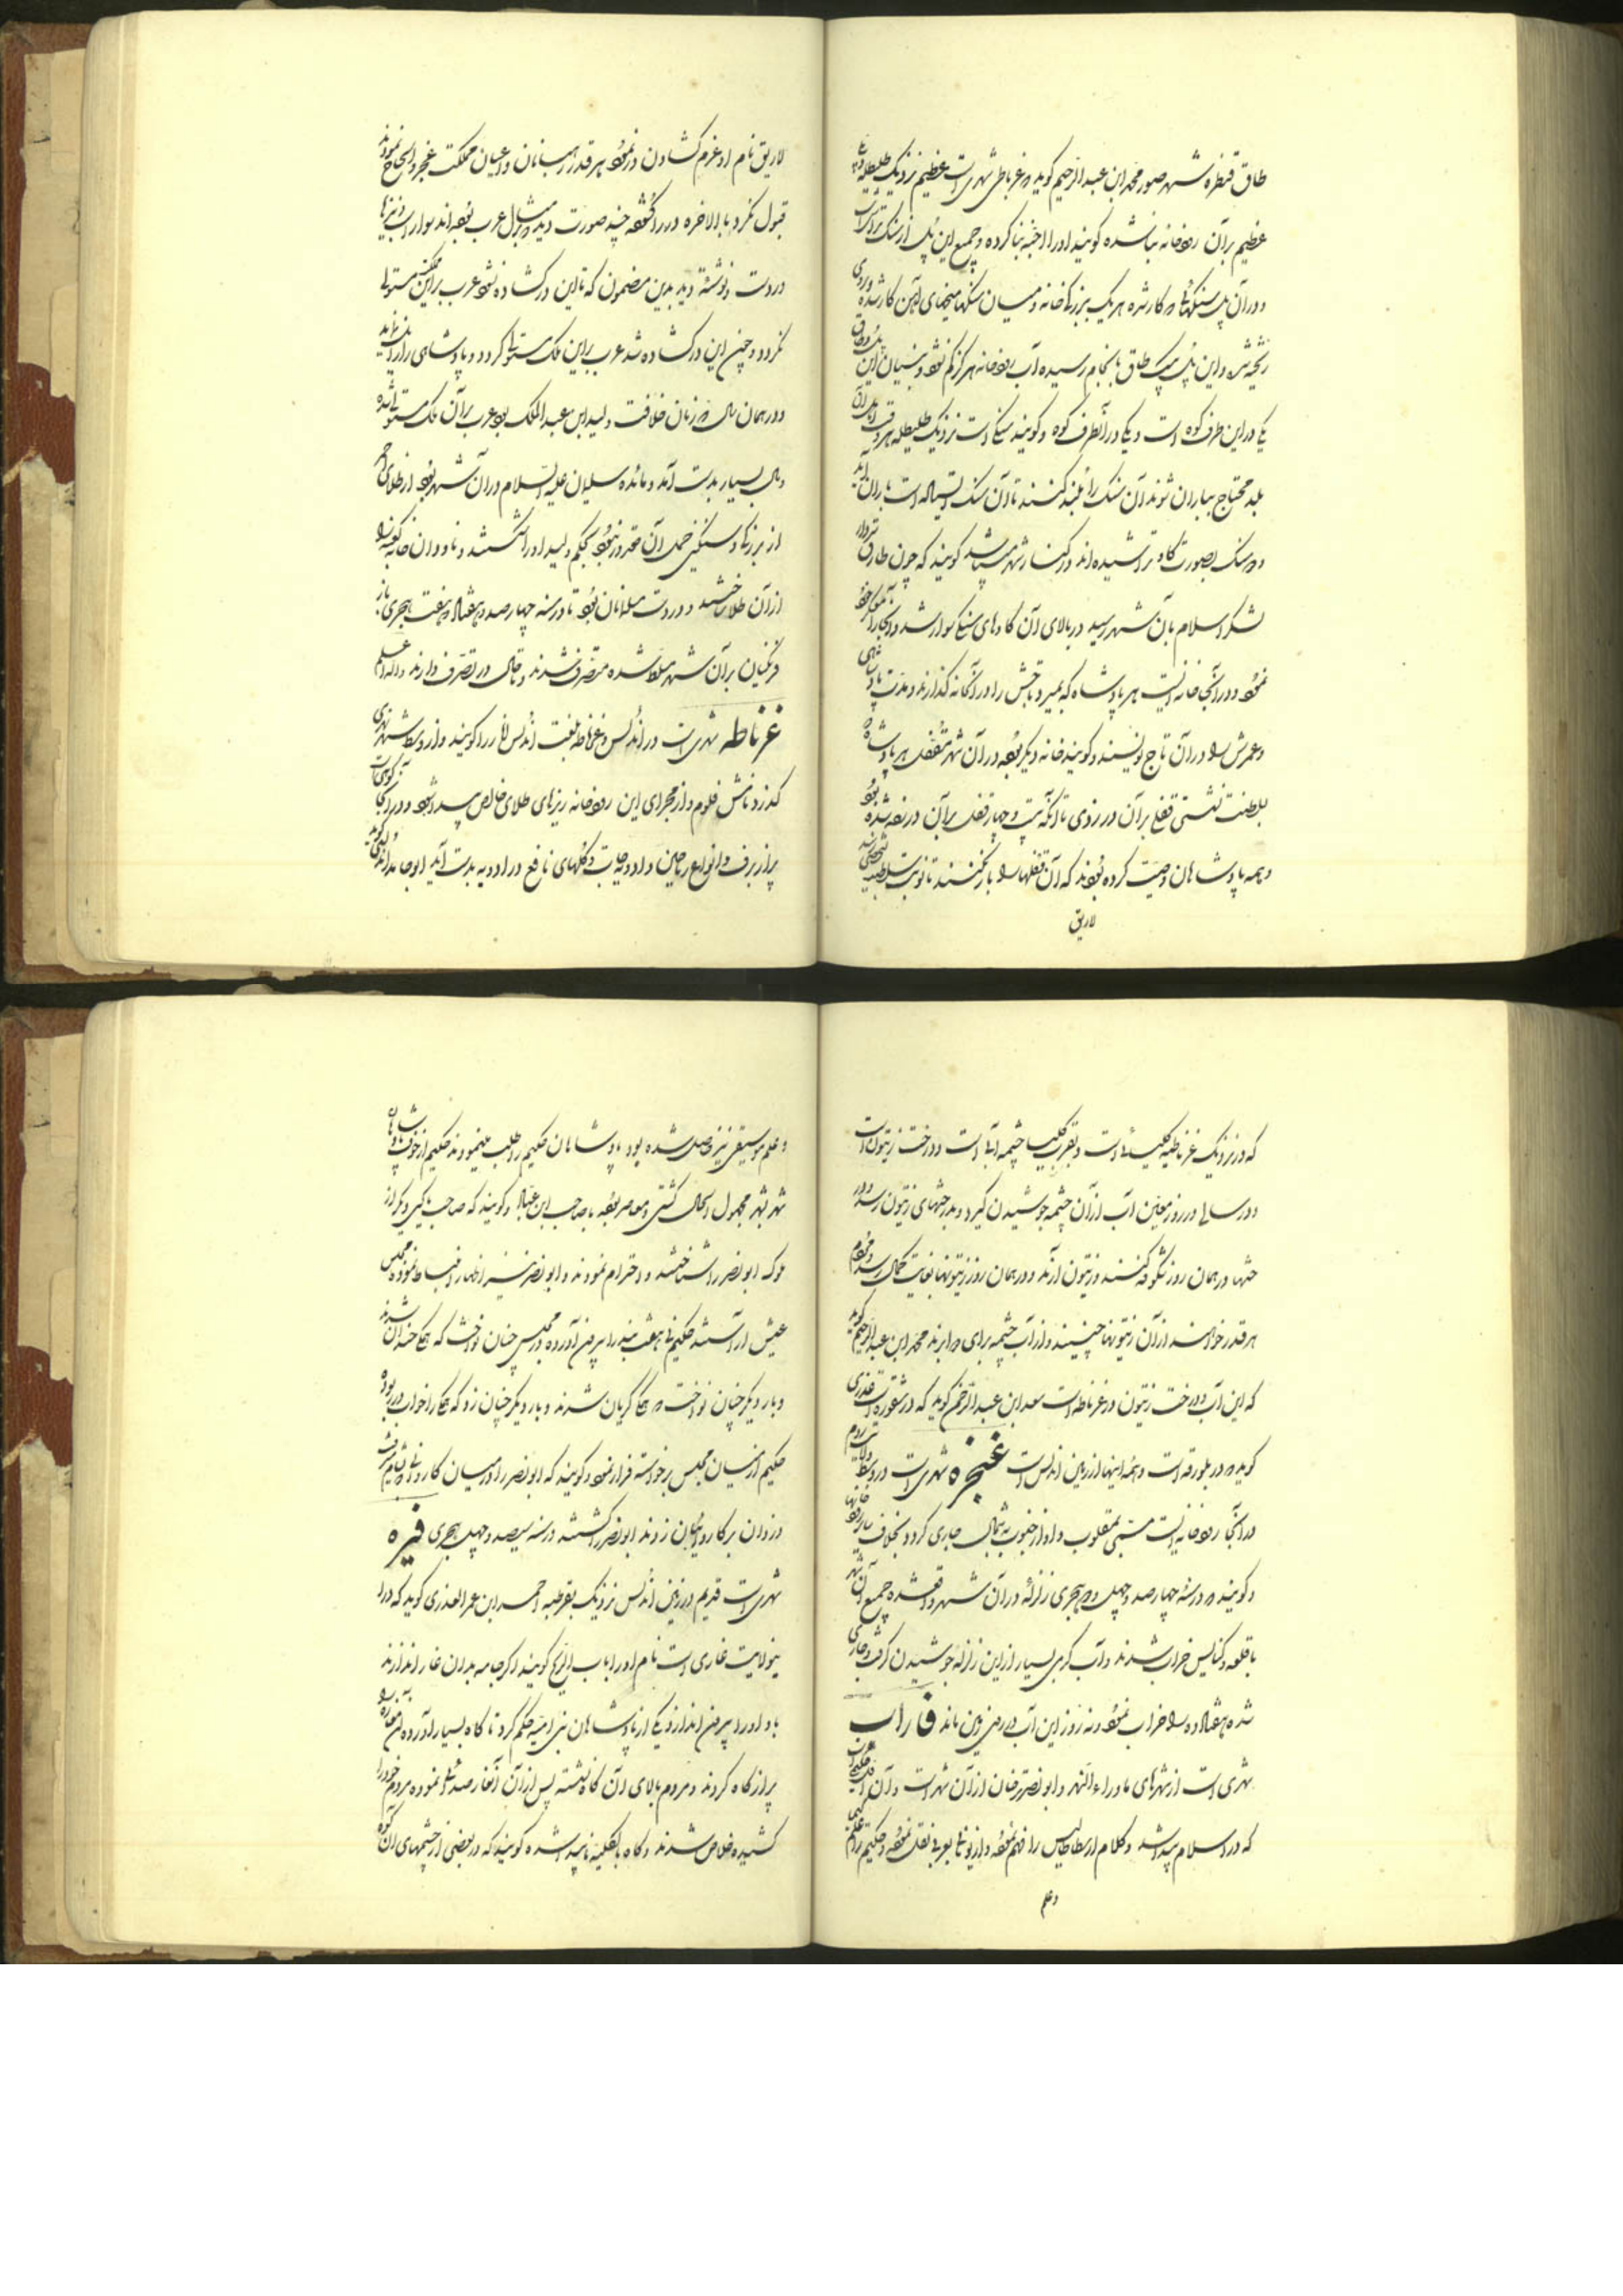 طاق قنطره شهر صور محمد ابن عبدالرحیم کوید و غرناطی شهری است عظیم نزدیک طلیطله
عظیم بر آن رودخانه بنا شده کویند او را اجنه بنا کرده و جمیع این پل از سنک تراش است
و در آن پل سنکها بکار شده هر یک ببزرکی خانه و میان سنکها میخهای آهن کار شده
ریخته شده و این پل بیک طاق بانجام رسیده آب رودخانه هرکز کم نشود و بنیان این
یکی در این طرف کوه است و یکی در آنطرف کوه و کویند سنکی است نزدیک طلیطله هر وقت
بلد محتاج بباران شوند آن سنک را بلند کنند تا آن سنک ایستاده است باران آید
دو سنک بصورت کاو تراشیده‌اند در کنار شهر میباشد کویند که چون طارق
لشکر اسلام بآن شهر رسید در بالای آن کاوهای سنکی سوار شد و آنجا را
نمود و در آنجا خانه ایست هر پادشاه که بمیرد تاجش را در آنخانه کذارند و مدت پادشاهی
و عمرش را در آن تاج نویسند و کویند خانه دیکر بوده در آن شهر مقفل هر پادشاه
بسلطنت نشستی قفلی بر آن در زدی تا آنکه بیست و چهار قفل بر آن در زده شده بود
و همه پادشاهان وصیت کرده بودند که آن قفلها را باز نکنند تا نوبت سلطنت بشخصی رسید
لاریق
لاریق نام او عزم کشادن در نمود هر قدر رهبانان و اعیان مملکت عجز و الحاح نمودند
قبول نکرد بالاخره در را کشود چند صورت دید بشکل عرب بوده‌اند سوار اسب و نیزها
در دست و نوشته دید بدین مضمون که تا این در کشاده نشود عرب بر این مملکت مستولی
نکردد و چون این در کشاده شد عرب بر این ملک مستولی کردد و پادشاهی را براندازند
و در همان سال و زمان خلافت ولید ابن عبدالملک بود عرب بر آن ملک مستولی شده
و مال بسیار بدست آمد و مائده سلیمان علیه السلام در آن شهر بود از طلای احمر
از بزرکی و سنکینی حمل آن مقدور نبود بحکم ولید او را شکستند و ناودان خانه کعبه را
از آن طلا ساختند و در دست مسلمانان بود تا در سنه چهار صد و هفتاد و هفت هجری باز
فرنکیان بر آن شهر مسلط شده متصرف شدند و تا حال در تصرف دارند والله اعلم
غرناطه شهری است در اندلس و غرناطه بلغت اندلس انار را کویند و از وسط شهر نهری
کذرد نامش قلوم و از مجرای این رودخانه ریزهای طلای خالص پیدا شود و در آنجا کوهی است
پر از برف و انواع ریاحین و ادویه‌جات و کلهای نافع در ادویه بدست آید ابوحامد اندلسی کوید
که در نزدیک غرناطه کلیسائی است و بقرب کلیسا چشمه آبی است و درخت زیتون است
و در سالی در روز معین آب از آن چشمه جوشیدن کیرد و بدرختهای زیتون رسد و در
ختها در همان روز شکوفه کنند و زیتون آرند و در همان روز زیتونها بغایت کمال رسد و مردم
هر قدر خواهند از آن زیتونها چینند و از آب چشمه برای دوا برند محمد ابن عبدالرحیم کوید
که این آب و درخت زیتون در غرناطه است سعد ابن عبدالرحمن کوید که در شقوره است عذری
کوید در بلورقه است و همه اینها از زمین اندلس است غنجره شهری است در وسط ولایت روم
در آنجا رودخانه ایست مسمی بمقلوب و او از جنوب بشمال جاری کردد بخلاف سایر رودخانها
و کویند در سنه چهار صد و چهل و دو هجری زلزله در آن شهر واقع شده جمیع آن شهر
با قلعه و کنایس خراب شدند و آب کرمی بسیار از این زلزله جوشیدن کرفت و جاری
شده هفتاد ده را خراب نمود و نه روز این آب در روی زمین ماند فاراب
شهری است از شهرهای ماوراء النهر و ابونصر ترخان از آن شهر است و آن اول حکیمی است
که در اسلام پیدا شد و کلام ارسطاطالیس را فهم نموده و از یونانی بعربی نقل نموده و حکیم را علم کیمیا
و علم
و علم موسیقی نیز حاصل شده بود پادشاهان حکیم را طلب مینمودند حکیم از خوف پادشاهان
شهر بشهر مجهول الحال کشتی و معاصر بوده با صاحب ابن عباد و کویند که صاحب بکی دیکر از
ملوک ابونصر را شناختند و احترام نمودند و ابونصر نیز اظهار انبساط نموده مجلس
عیش آراستند حکیم نی هفت بند را بیرون آورده در مجلس چنان نواخت که همه خندان شدند
و بار دیکر چنان نواخت که همکی کریان شدند و بار دیکر چنان زد که همه را خواب در ربوده
حکیم از میان مجلس برخواسته فرار نمود و کویند که ابونصر را در میان کاروانی بشام میرفت
دزدان بر کاروانیان زدند ابونصر را کشتند در سنه سیصد و چهل هجری فیره
شهری است قدیم در زمین اندلس نزدیک بقرطبه احمد ابن عمر العذری کوید که در
نیولایت غاری است نام او را باب الریح کویند اکر جامه بدان غار اندازند
باد او را بیرون اندازد یکی از پادشاهان بنی امیه حکم کرد تا کاه بسیار آورده آن مغاره را
پر از کاه کردند و مردم بالای آن کاه نشسته پس از آن آنغار صدائی نموده مردم خود را
کشیده خلاص شدند و کاه بالکلیه ناپیدا شده کویند که در بعضی از چشمهای آن کوه